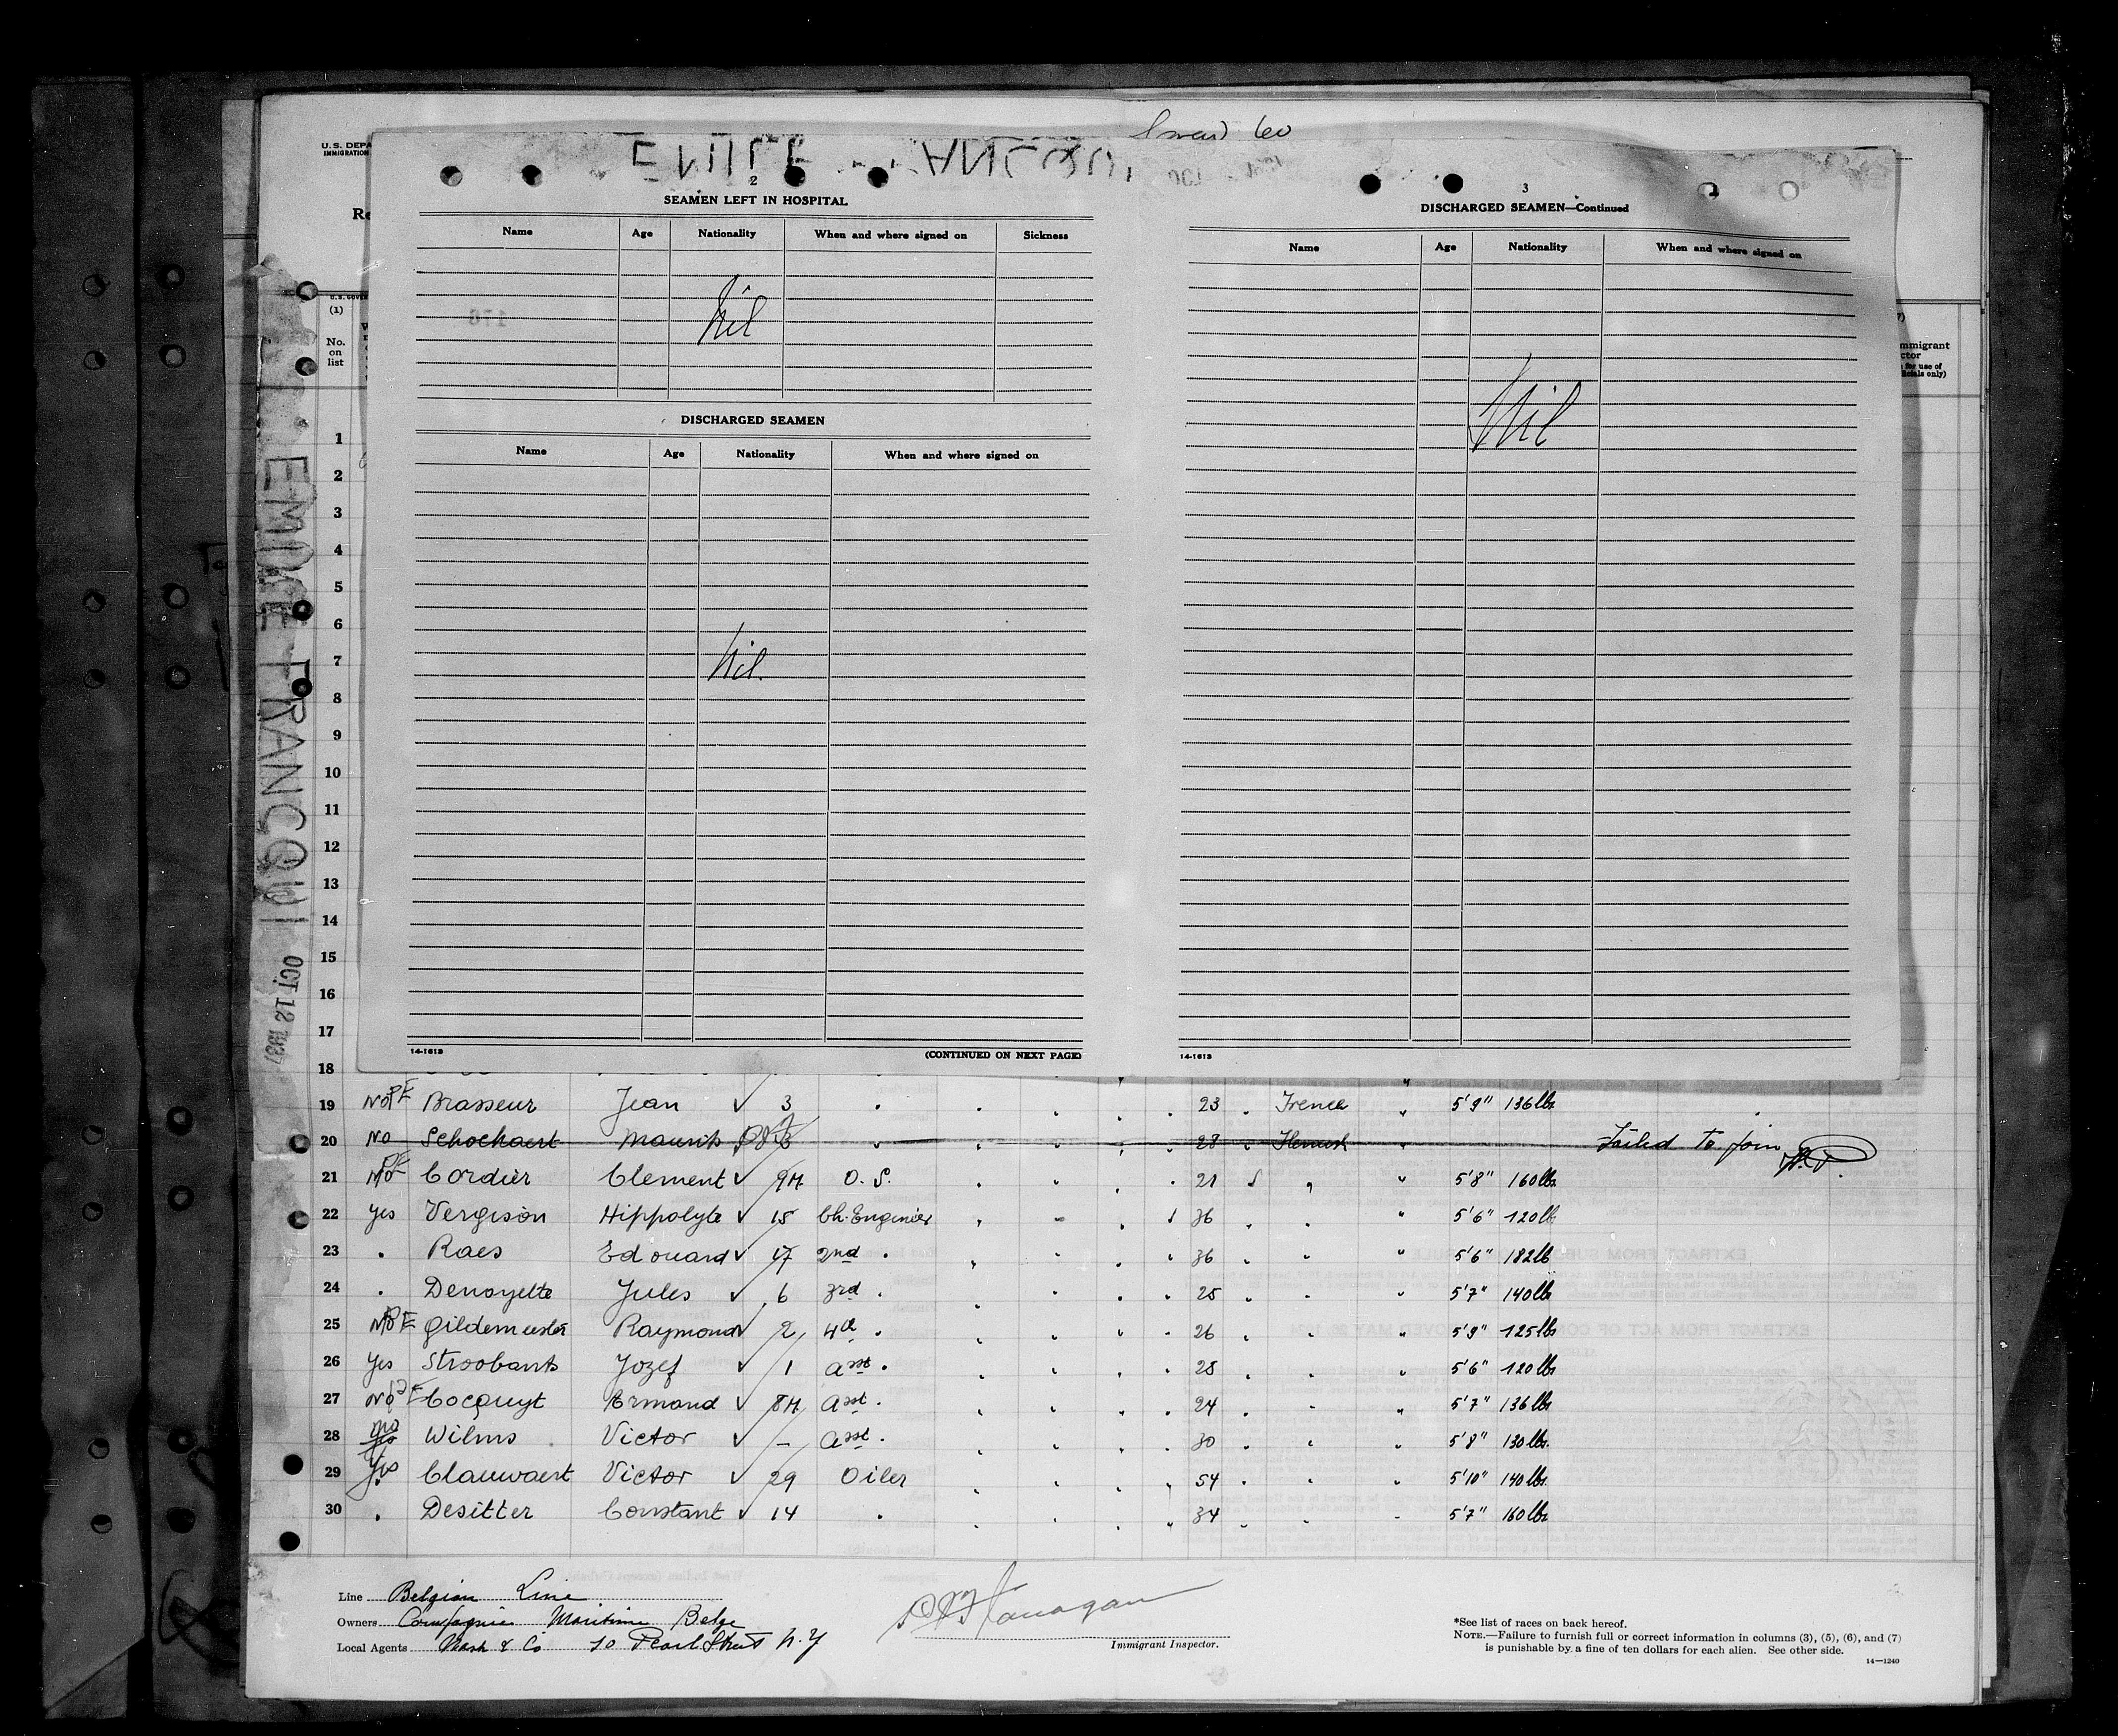 U.S. DEPA
IMMIGRATION
Re
2
SEAMEN LEFT IN HOSPITAL
Name Age Nationality When and where signed on Sickness
Nil
176
DISCHARGED SEAMEN
Name Age Nationality When and where signed on
Nil.
14-1613 (CONTINUED ON NEXT PAGE)
3
DISCHARGED SEAMEN—Continued
Name Age Nationality When and where signed on
Nil
14-1613
EMILE FRANCQUI OCT 12 1937
U.S. GOVER
(1)
No.
on
list
mmigrant
ctor
for use of
ficials only)
1
2
3
4
5
6
7
8
9
10
11
12
13
14
15
16
17
18
19 No PE Brasseur Jean ✓ 3 " " " " " 23 " French " 5'9" 136 lbs
20 No Schockaert Maurits 3 " " " " " 28 " Flemish " Failed to join
21 No PE Cordier Clement ✓ 9M O.S. " " " " 21 S " " 5'8" 160 lbs
22 Yes Vergison Hippolyte ✓ 15 Ch. Engineer " " " " 36 " " " 5'6" 120 lb
23 " Raes Edouard ✓ 17 2nd " " " " " 36 " " " 5'6" 182 lb
24 " Denoyette Jules ✓ 6 3rd " " " " " 25 " " " 5'7" 140 lb
25 No PE Gildemeester Raymond ✓ 2 4th " " " " " 26 " " " 5'9" 125 lbs
26 Yes Stroobants Jozef ✓ 1 Asst " " " " " 25 " " " 5'6" 120 lbs
27 No PE Cocquyt Armand ✓ 8M Asst " " " " " 24 " " " 5'7" 136 lbs
28 Yes Wilms Victor ✓ – Asst " " " " " 30 " " " 5'8" 130 lbs.
29 Yes Clauwaert Victor ✓ 29 Oiler " " " " 54 " " " 5'10" 140 lbs.
30 " Desitter Constant ✓ 14 " " " " " 34 " " " 5'7" 160 lbs
Line Belgian Line
Owners Compagnie Maritime Belge
Local Agents & Co 10 Pearl Street N.Y
Flanagan
Immigrant Inspector.
*See list of races on back hereof.
NOTE.—Failure to furnish full or correct information in columns (3), (5), (6), and (7)
is punishable by a fine of ten dollars for each alien. See other side.
14—1240